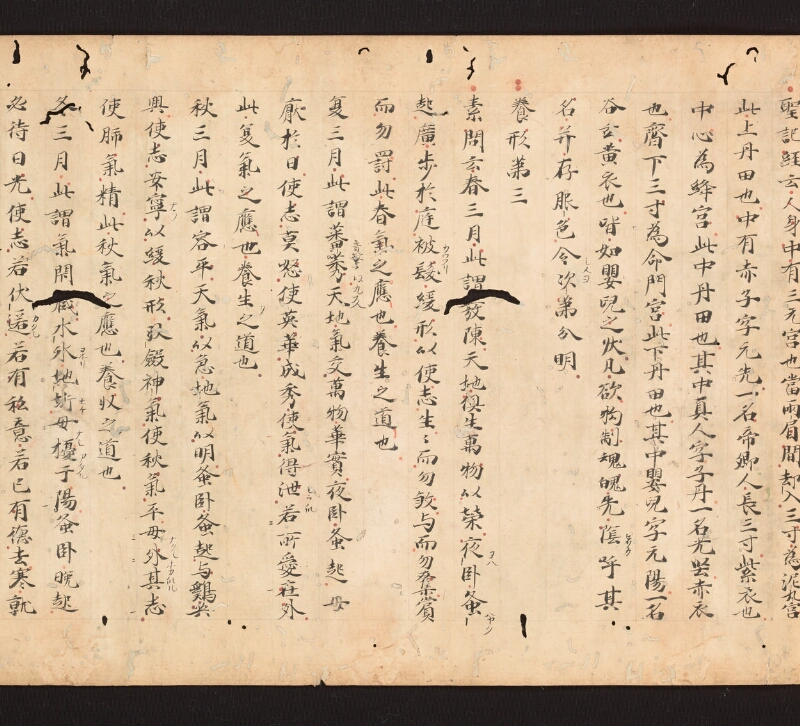 聖記經云人身中有三元宮也當兩眉間却入三寸為泥丸宮
此上丹田也中有赤子字元先一名帝卿人長三寸紫衣也
中心為絳宮此中丹田也其中真人字子丹一名光堅赤衣
也齊下三寸為命門宮此下丹田也其中嬰兒字元陽一名
谷玄黄衣也皆如嬰兒之狀凡欲拘制魂魄先陰呼其
名并存服色令次第分明
養形第三
素問云春三月此謂發陳天地俱生萬物以榮夜卧蚤
起廣步於庭被髮緩形以使志生〻而勿敓与而勿奪賞
而勿罰此春氣之應也養生之道也
夏三月此謂蕃莠天地氣交萬物華實夜卧蚤起毋
厭於日使志莫怒使英華成秀使氣得泄若所愛在外
此夏氣之應也養生之道也
秋三月此謂容平天氣以急地氣以明蚤卧蚤起与鷄俱
興使志安寧以緩秋形收斂神氣使秋氣平毋外其志
使肺氣精此秋氣之應也養收之道也
冬三月此謂氣閇藏水氷地坼毋擾于陽蚤卧晩起
必待日光使志若伏匿若有私意若已有德去寒就